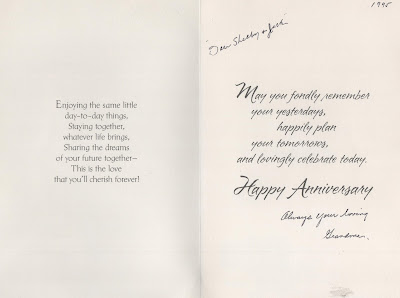 Enjoying the same little
day-to-day things,
Staying together,
whatever life brings,
Sharing the dreams
of your future together—
This is the love
that you'll cherish forever!
1998
"Dear Shelby & Jack"
May you fondly remember
your yesterdays,
happily plan
your tomorrows,
and lovingly celebrate today.
Happy Anniversary
Always your loving
Grandma.